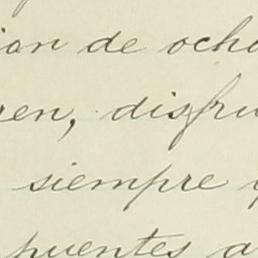 ion de ocho
ren, disfru
siempre y
puentes a